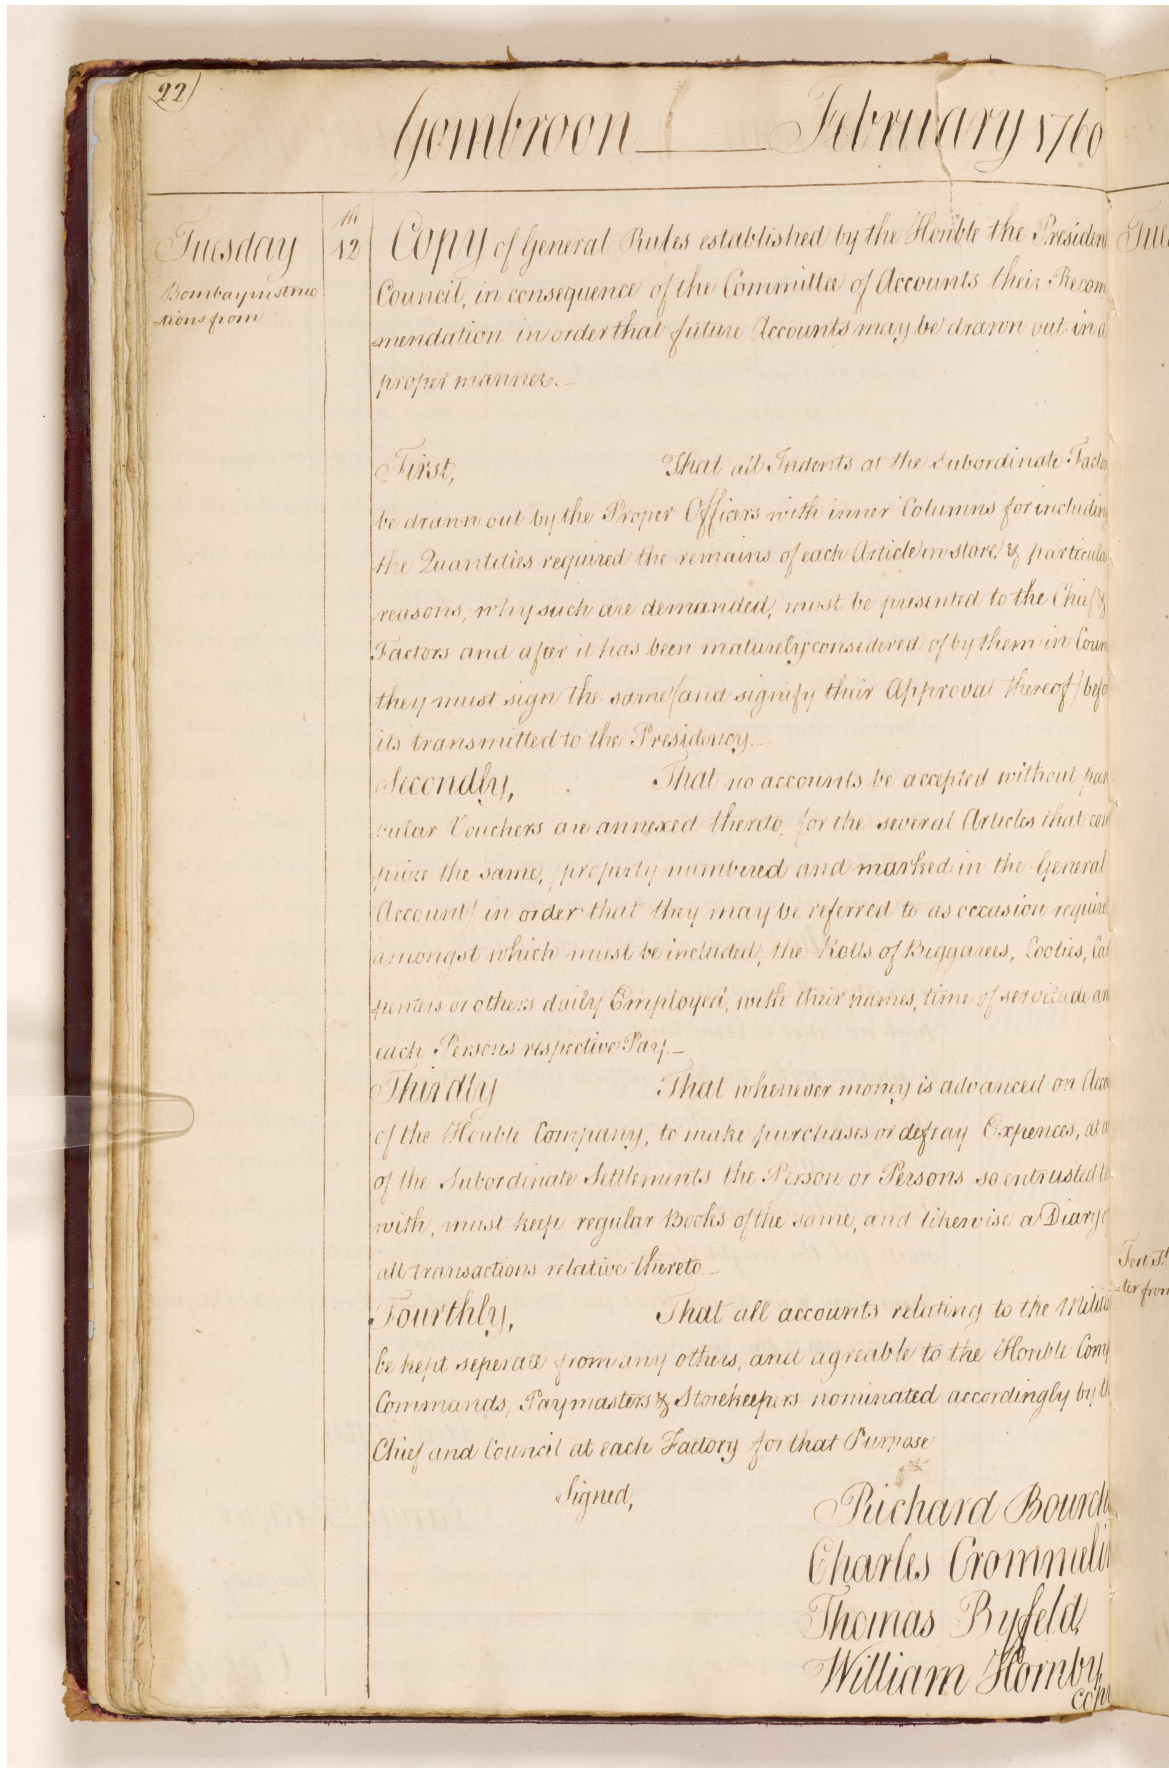 22
Gombroon February 1760
Tuesday 12th
Bombay instruc
-tions from
Copy of General Rules established by the Honble the Presiden
Council, in consequence of the Committee of Accounts their Recom
mendation in order that future Accounts may be drawn out in a
proper manner.
First, That all Indents at the Subordinate Facto
be drawn out by the Proper Officers with inner Columns for including
the Quantities required the remains of each Article in store, & particular
reasons, why such are demanded, must be presented to the Chief &
Factors and after it has been maturely considered of by them in Coun
they must sign the same (and signify their Approval thereof) befo
its transmitted to the Presidency.
Secondly, That no accounts be accepted without par
cular Vouchers are annexed thereto, for the several Articles that com
prize the same, (properly numbered and marked in the General
Account) in order that they may be referred to as occasion require
amongst which must be included, the Rolls of Biggarees, Coolies, Car
penters or others daily Employed, with their names, time of servitude an
each Persons respective Pay.
Thirdly That whenever money is advanced on Acco
of the Honble Company, to make purchases or defray Expences, at a
of the Subordinate Settlements the Person or Persons so entrusted th
with, must keep regular Books of the same, and likewise a Diary o
all transactions relative thereto.
Fourthly, That all accounts relating to the Milita
be kept seperate from any others, and agreable to the Honble Comp
Commands, Paymasters & Storekeepers nominated accordingly by th
Chief and Council at each Factory for that Purpose
Signed,
Richard Bourch
Charles Crommelin
Thomas Byfeld
William Hornby
Cop
Tue
Fort St
-ter from